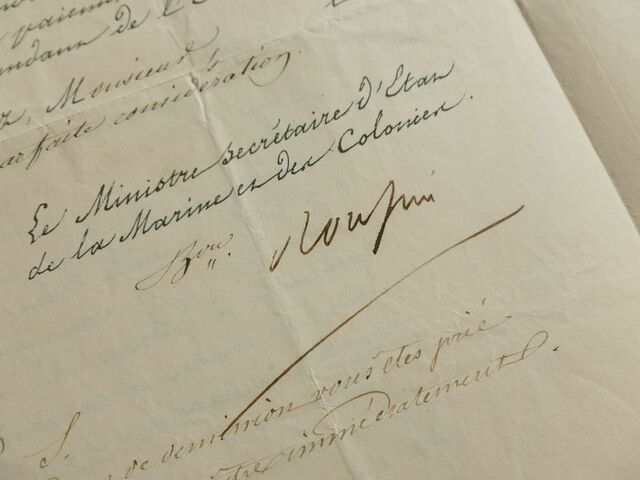 de l'
z, Monsieur
parfaite considération.
Le Ministre Secrétaire d'Etat
de la Marine et des Colonies.
Bon. Roussin
P. S.
de démission vous êtes prié
immédiatement.